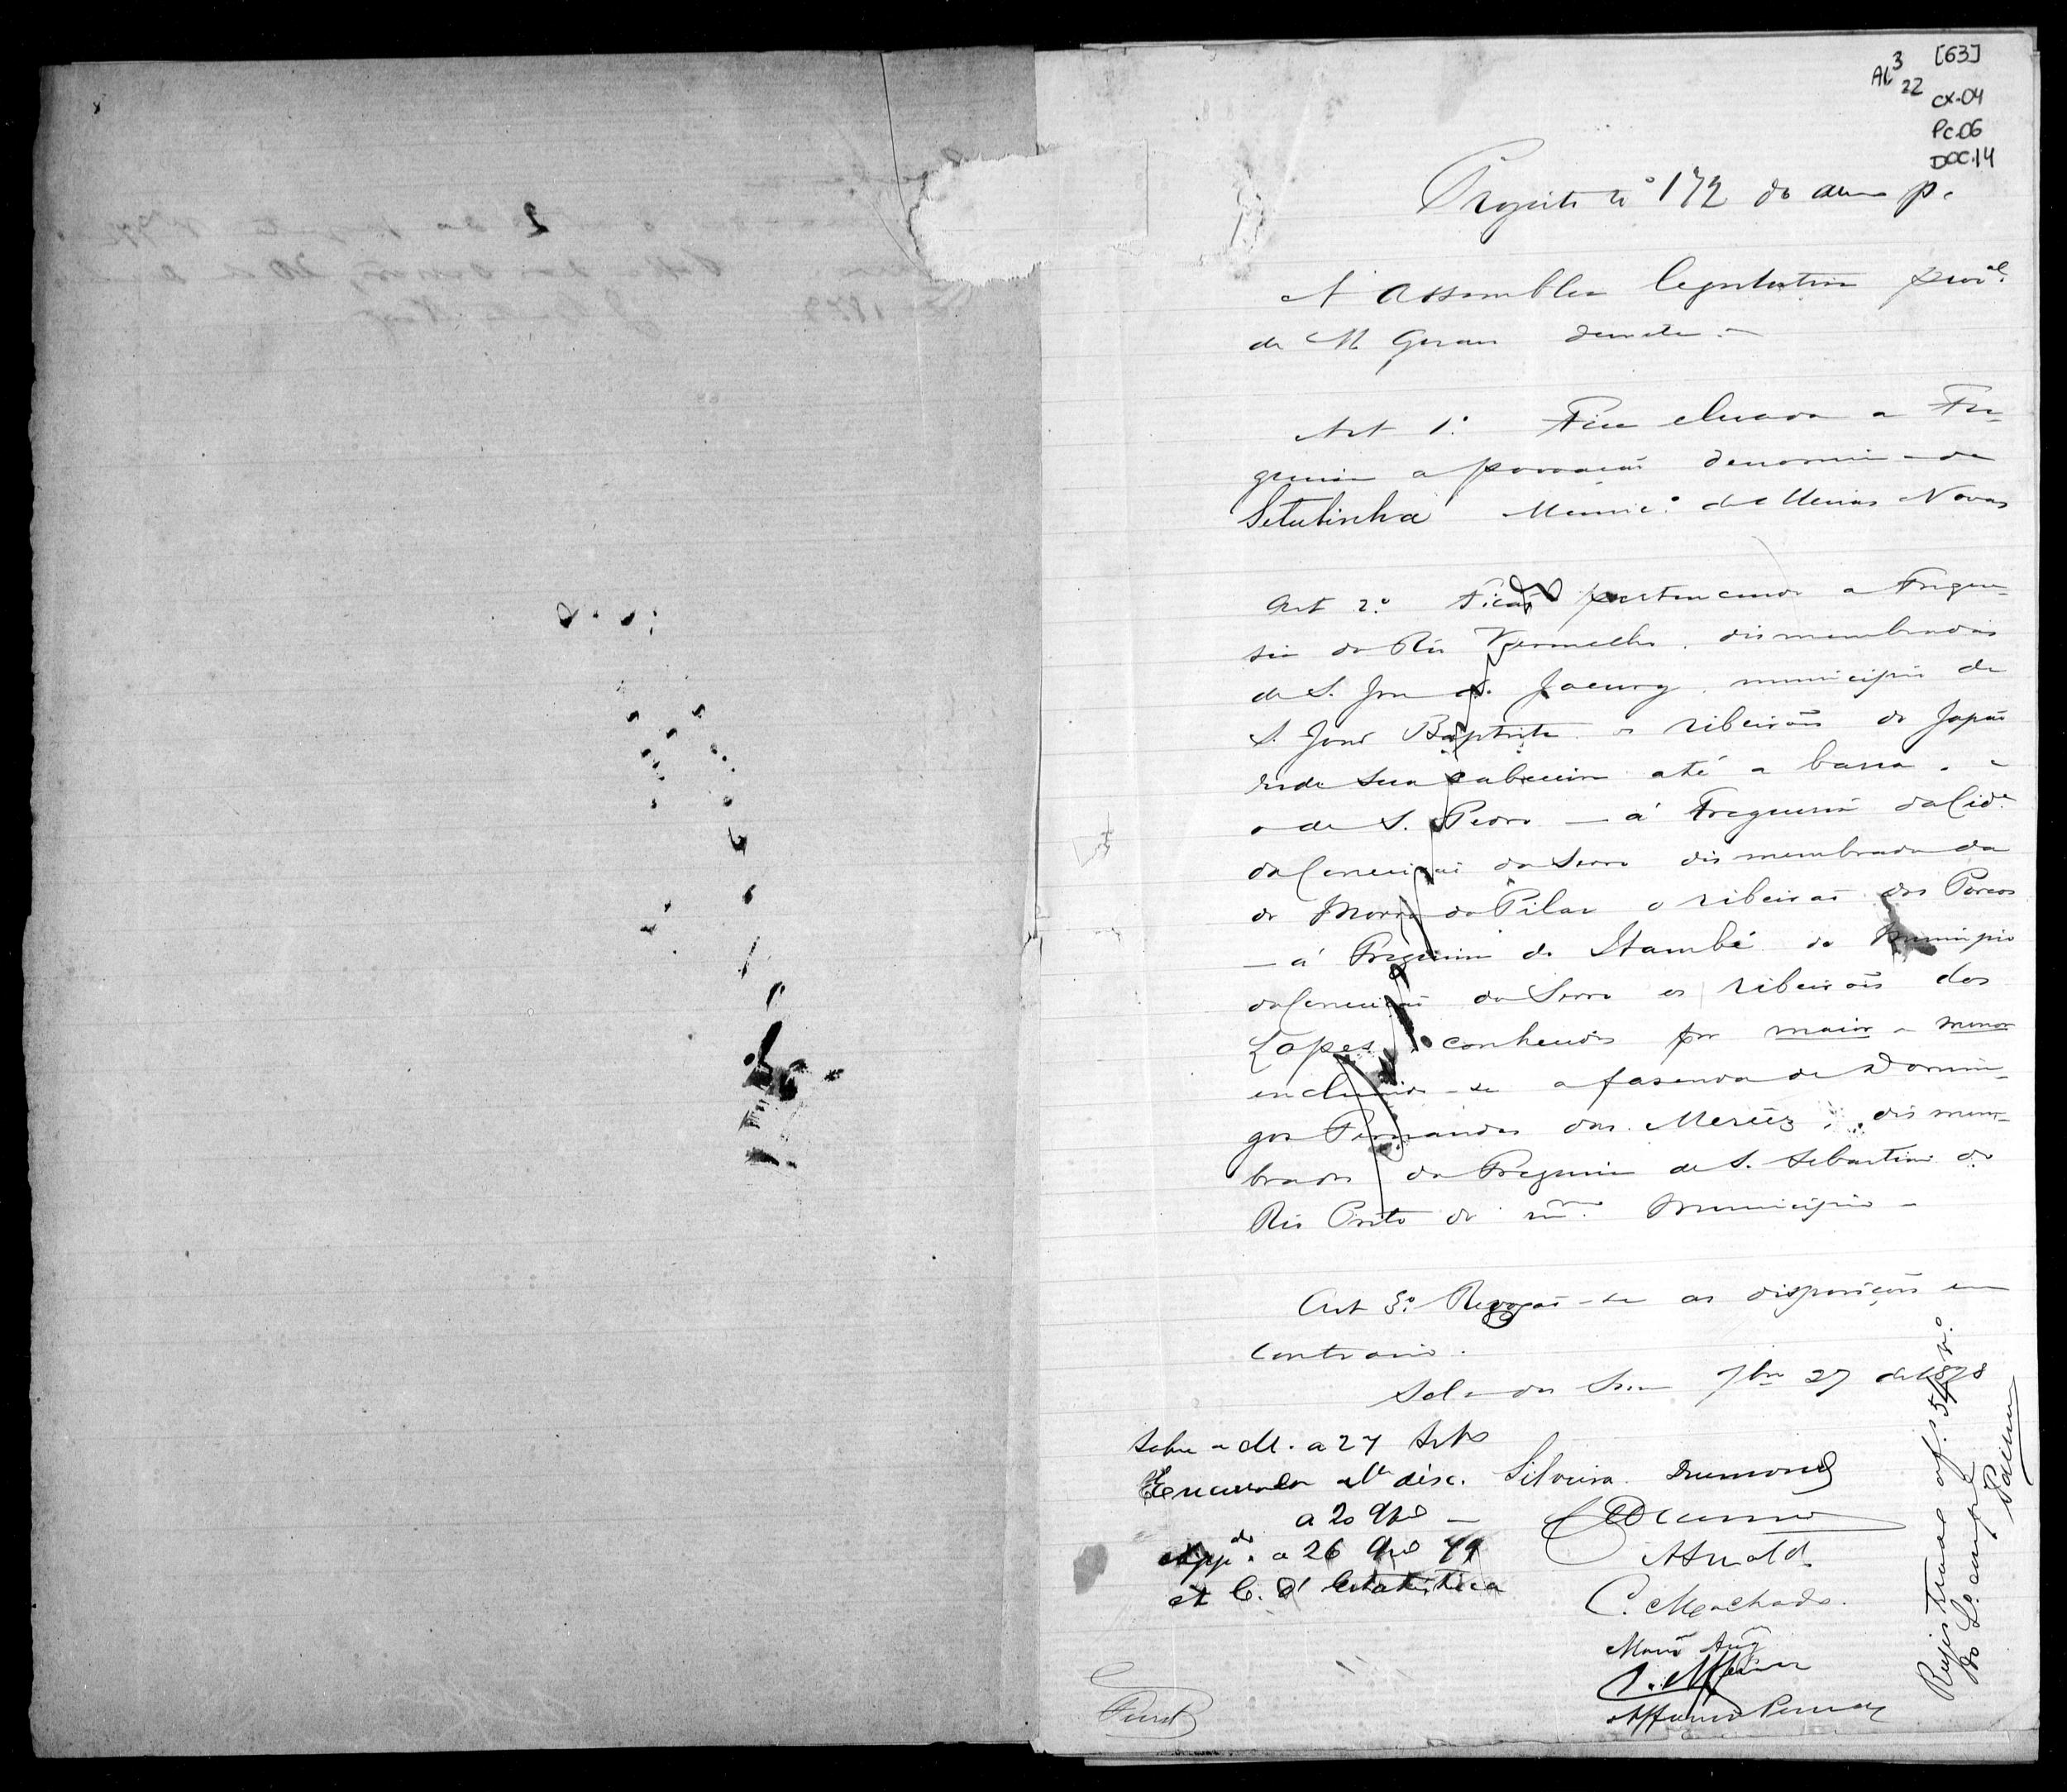 [63]
AL 3 22
CX-04
PC.06
DOC.14
2
Projecto nº 172 do anno p.
A Assemblea legislativa provcal.
de M Geraes decreta:
Art 1.º Fica elevada a Fre-
guesia a povoação denominada
Setubinha Municº. de Minas Novas
Art 2.º Ficão pertencendo a Fregue-
sia do Rio Vermelho, dismembrados
de S. José do Jacury, municipio de
S. João Baptista os ribeirões do Japão
desde sua cabeceira até a barra, e
o de S. Pedro — á Freguesia da Cide.
da Conceição do Serro dismembrado da
do Morro do Pilar o ribeirão dos Porcos
— á Freguesia de Itambé do Municipio
da Conceição do Serro os ribeirões dos
Lopes, conhecidos por maior e menor
incluindo-se a fasenda de Domin-
gos Fernandes das Mercêz, dismem-
brados da Freguesia de S. Sebastião do
Rio Preto do mmo. Municipio —
Art 3.º Revogão-se as disposições em
contrario.
Sala das Ses. 7bro 27 de 1878
Sobre a M. a 27 Setbo
Encerrada a 1ª disc. Silveira Drumond
a 20 9bro —
Appda. a 26 9bro 79 Arnaldo
A C. d' Estatistica C. Machado.
Affonso Penna
Registrado a f. 54 vº.
do Lº. comp.e